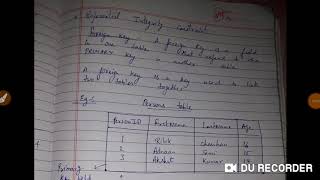 * Referential Integrity constraint
Foreign key - A foreign key is a field
in one table that refers to the
primary key in another table
A foreign key is a key used to link
two tables together.
Eg:- Persons table
PersonID FirstName LastName Age
1 Chauhan 16
2 Adnaan 15
3 Akshat Kumar
Primary
Key field
DU RECORDER